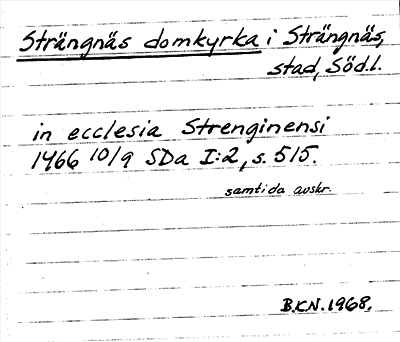 Strängnäs domkyrka i Strängnäs,
stad, Södl.
in ecclesia Strenginensi
1466 10/9 SDa I:2, s. 515.
samtida avskr.
B.K.N. 1968.